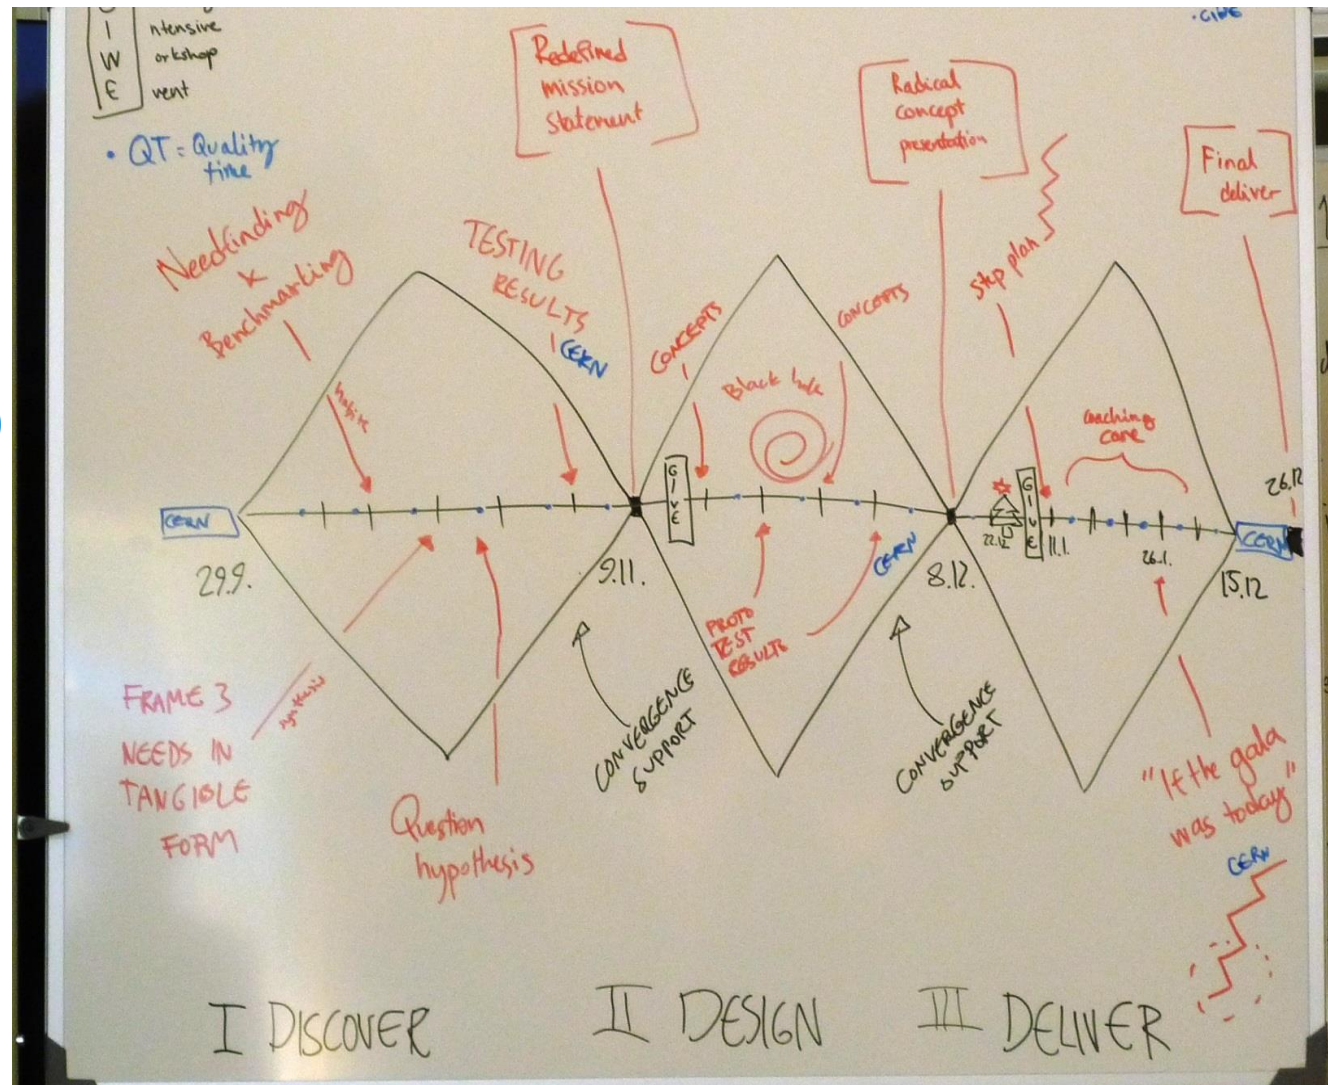 I ntensive
W orkshop
E vent
• QT = Quality
time
• GIVE
Redefined
mission
statement
Radical
concept
presentation
Final
deliver
Needfinding
x
Benchmarking
TESTING
RESULTS
CERN
CONCEPTS
Black hole
CONCEPTS
step plan
coaching
CERN
29.9.
9.11.
GIVE
CERN
8.12.
22.12
GIVE
11.1.
26.1.
CERN
15.12
26.12
PROTO
TEST
RESULTS
CONVERGENCE
SUPPORT
CONVERGENCE
SUPPORT
FRAME 3
NEEDS IN
TANGIBLE
FORM
Question
hypothesis
"If the gala
was today"
CERN
I DISCOVER
II DESIGN
III DELIVER